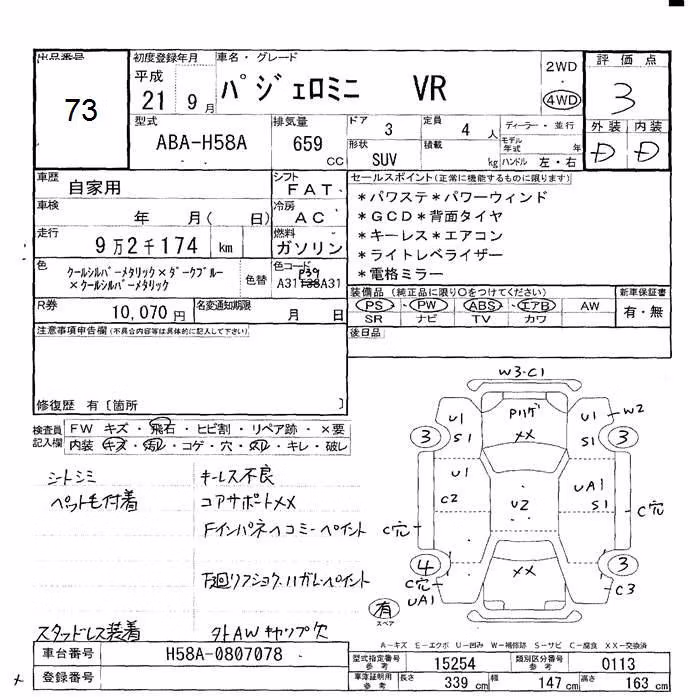 出品番号
73
初度登録年月
平成
21 9月
車名・グレード
パジェロミニ VR
2WD
・
4WD
評価点
3
型式
ABA-H58A
排気量
659
CC
ドア
3
定員
4 人
形状
SUV
積載
kg
ディーラー・並行
モデル年式 年
ハンドル 左・右
外装 内装
D D
車歴
自家用
シフト
FAT
車検
年 月( 日)
冷房
AC
走行
9万2千174 km
燃料
ガソリン
色
クールシルバーメタリック×ダークブルー
×クールシルバーメタリック
色替
色コード
P39
A31138A31
R券
10,070円
名変通知期限
月 日
セールスポイント(正常に機能するものに限ります)
*パワステ*パワーウィンド
*GCD*背面タイヤ
*キーレス*エアコン
*ライトレベライザー
*電格ミラー
装備品(純正品に限り○をつけてください)
PS・PW・ABS・エアB・AW
SR ナビ TV カワ
新車保証書
有・無
注意事項申告欄(不具合内容等は具体的に記入して下さい)
後日品
修復歴 有[箇所 ]
検査員記入欄
FW キズ・飛石・ヒビ割・リペア跡・×要
内装・キズ・汚れ・コゲ・穴・スレ・キレ・破レ
シートシミ
ペット毛付着
スタッドレス装着
キーレス不良
コアサポートXX
Fインパネヘコミーペイント
下廻りフショク、ハガレーペイント
タトAWキャップ欠
W3・C1
U1
S1
Pリゲ
XX
U1
W2
S1
3
3
U1
C2
U2
UA1
S1
C穴
C穴
4
C穴
UA1
XX
3
C3
有
スペア
A-キズ E-エクボ U-凹み W-補修跡 S-サビ C-腐食 XX-交換済
車台番号
H58A-0807078
登録番号
型式指定番号
参考
15254
類別区分番号
参考
0113
車庫証明用
参考
長さ 339 cm
幅 147 cm
高さ 163 cm